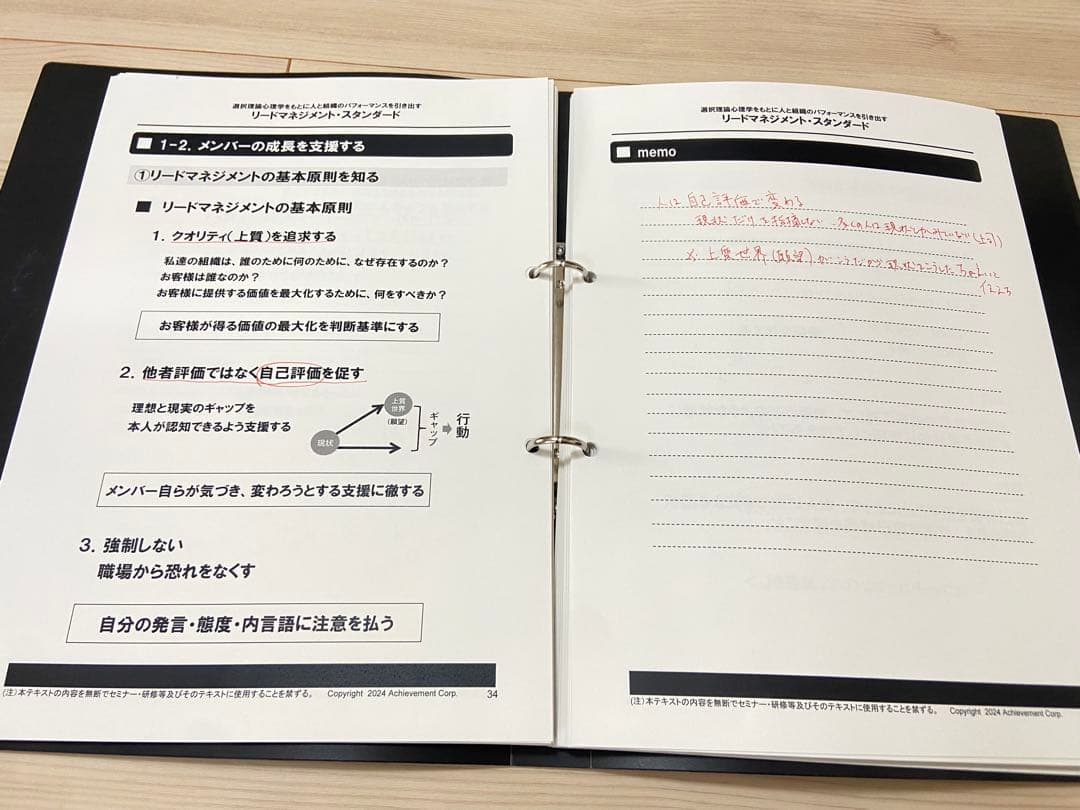 選択理論心理学をもとに人と組織のパフォーマンスを引き出す
リードマネジメント・スタンダード
1-2. メンバーの成長を支援する
①リードマネジメントの基本原則を知る
リードマネジメントの基本原則
1. クオリティ(上質)を追求する
私達の組織は、誰のために何のために、なぜ存在するのか?
お客様は誰なのか?
お客様に提供する価値を最大化するために、何をすべきか?
お客様が得る価値の最大化を判断基準にする
2. 他者評価ではなく自己評価を促す
理想と現実のギャップを
本人が認知できるよう支援する
現状
上質
世界
(願望)
ギャップ
行動
メンバー自らが気づき、変わろうとする支援に徹する
3. 強制しない
職場から恐れをなくす
自分の発言・態度・内言語に注意を払う
(注)本テキストの内容を無断でセミナー・研修等及びそのテキストに使用することを禁ずる。 Copyright 2024 Achievement Corp. 34
選択理論心理学をもとに人と組織のパフォーマンスを引き出す
リードマネジメント・スタンダード
memo
人は自己評価で変わる
現状だけを指摘しない 多くの人は現状しかみていない(上司)
上質世界(願望)がこうだから現状をこうしたら
(注)本テキストの内容を無断でセミナー・研修等及びそのテキストに使用することを禁ずる。 Copyright 2024 Achievement Corp.